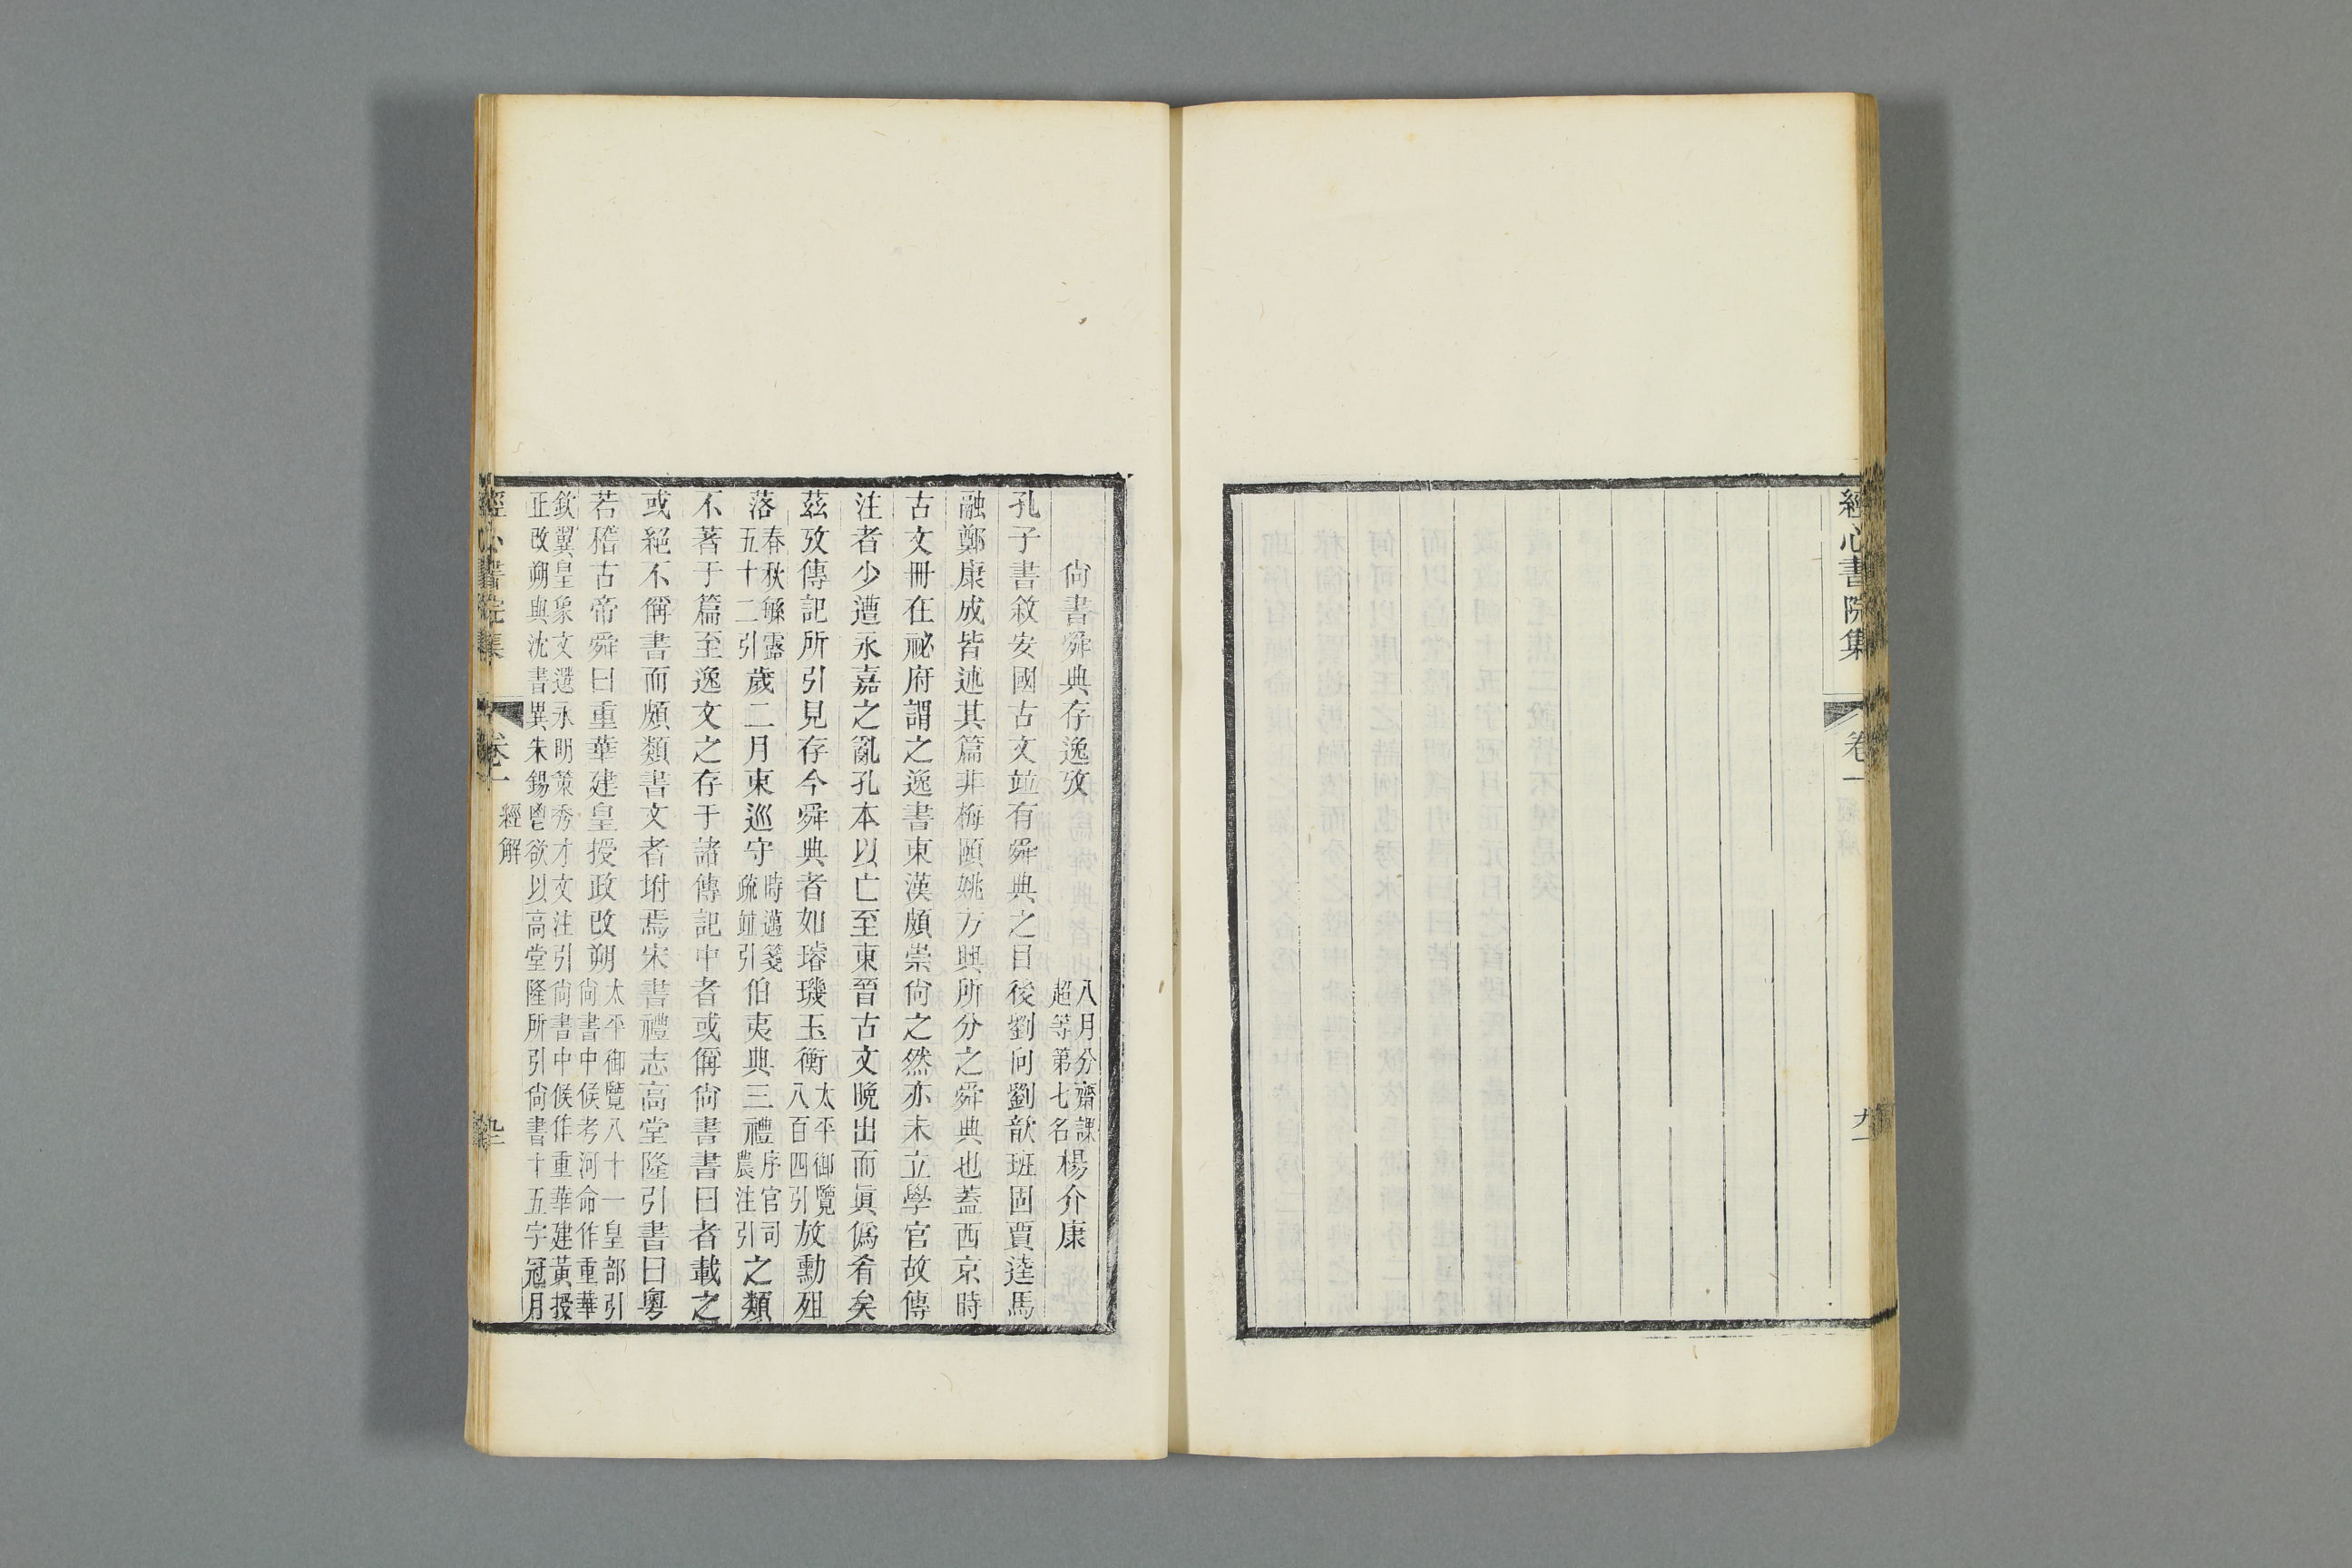 經心書院集
卷一
尙書舜典存逸攷
八月分齋課
超等第七名
楊介康
孔子書敘安國古文竝有舜典之目後劉向劉歆班固賈逵馬
融鄭康成皆述其篇非梅頤姚方興所分之舜典也蓋西京時
古文冊在祕府謂之逸書東漢頗崇尙之然亦未立學官故傳
注者少遭永嘉之亂孔本以亡至東晉古文晚出而眞僞肴矣
茲攷傳記所引見存今舜典者如璿璣玉衡太平御覽八百四引放勳殂
落春秋繇露五十二引歲二月東巡守時邁箋疏竝引伯夷典三禮序官司農注引之類
不著于篇至逸文之存于諸傳記中者或偁尙書書曰者載之
或絕不偁書而頗類書文者坿焉宋書禮志高堂隆引書曰粵
若稽古帝舜曰重華建皇授政改朔太平御覽八十一皇部引尙書中候考河命作重華
欽翼皇象文選永明策秀才文注引尙書中候作重華建黃授正改朔與沈書異朱錫鬯欲以高堂隆所引尙書十五字冠月
經心書院集
卷一
經解